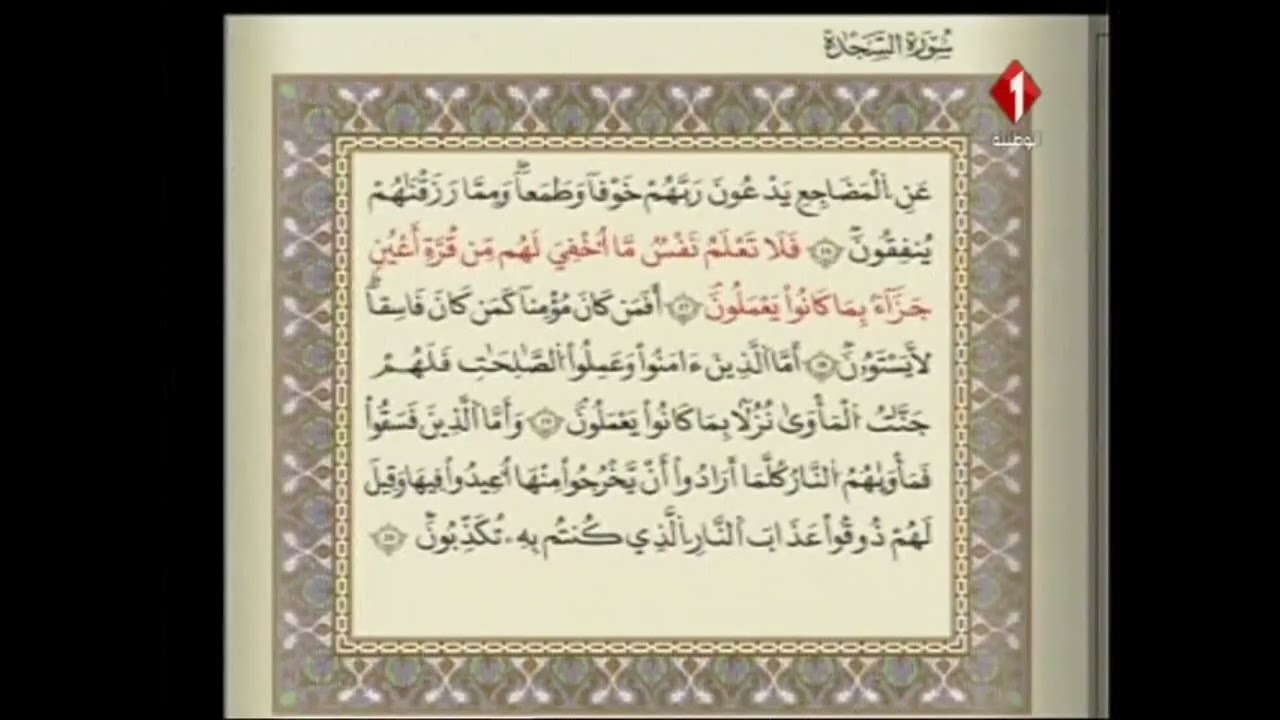 سُورَةُ السَّجْدَةِ
1
الوطنية
عَنِ اِ۬لْمَضَاجِعِ يَدْعُونَ رَبَّهُمْ خَوْفاٗ وَطَمَعاٗۖ وَمِمَّا رَزَقْنَٰهُمْ
يُنفِقُونَۖ فَلَا تَعْلَمُ نَفْسٞ مَّا أُخْفِيَ لَهُم مِّن قُرَّةِ أَعْيُنٖ
جَزَآءَۢ بِمَا كَانُواْ يَعْمَلُونَۖ أَفَمَن كَانَ مُؤْمِناٗ كَمَن كَانَ فَاسِقاٗۖ
لَّا يَسْتَوُۥنَۖ أَمَّا اَ۬لَّذِينَ ءَامَنُواْ وَعَمِلُواْ اُ۬لصَّٰلِحَٰتِ فَلَهُمْ
جَنَّٰتُ اُ۬لْمَأْوَىٰ نُزُلَاۢ بِمَا كَانُواْ يَعْمَلُونَۖ وَأَمَّا اَ۬لَّذِينَ فَسَقُواْ
فَمَأْوَىٰهُمُ اُ۬لنَّارُ كُلَّمَا أَرَادُواْ أَنْ يَّخْرُجُواْ مِنْهَا أُعِيدُواْ فِيهَا وَقِيلَ
لَهُمْ ذُوقُواْ عَذَابَ اَ۬لنَّارِ اِ۬لَّذِي كُنتُم بِهِۦ تُكَذِّبُونَۖ